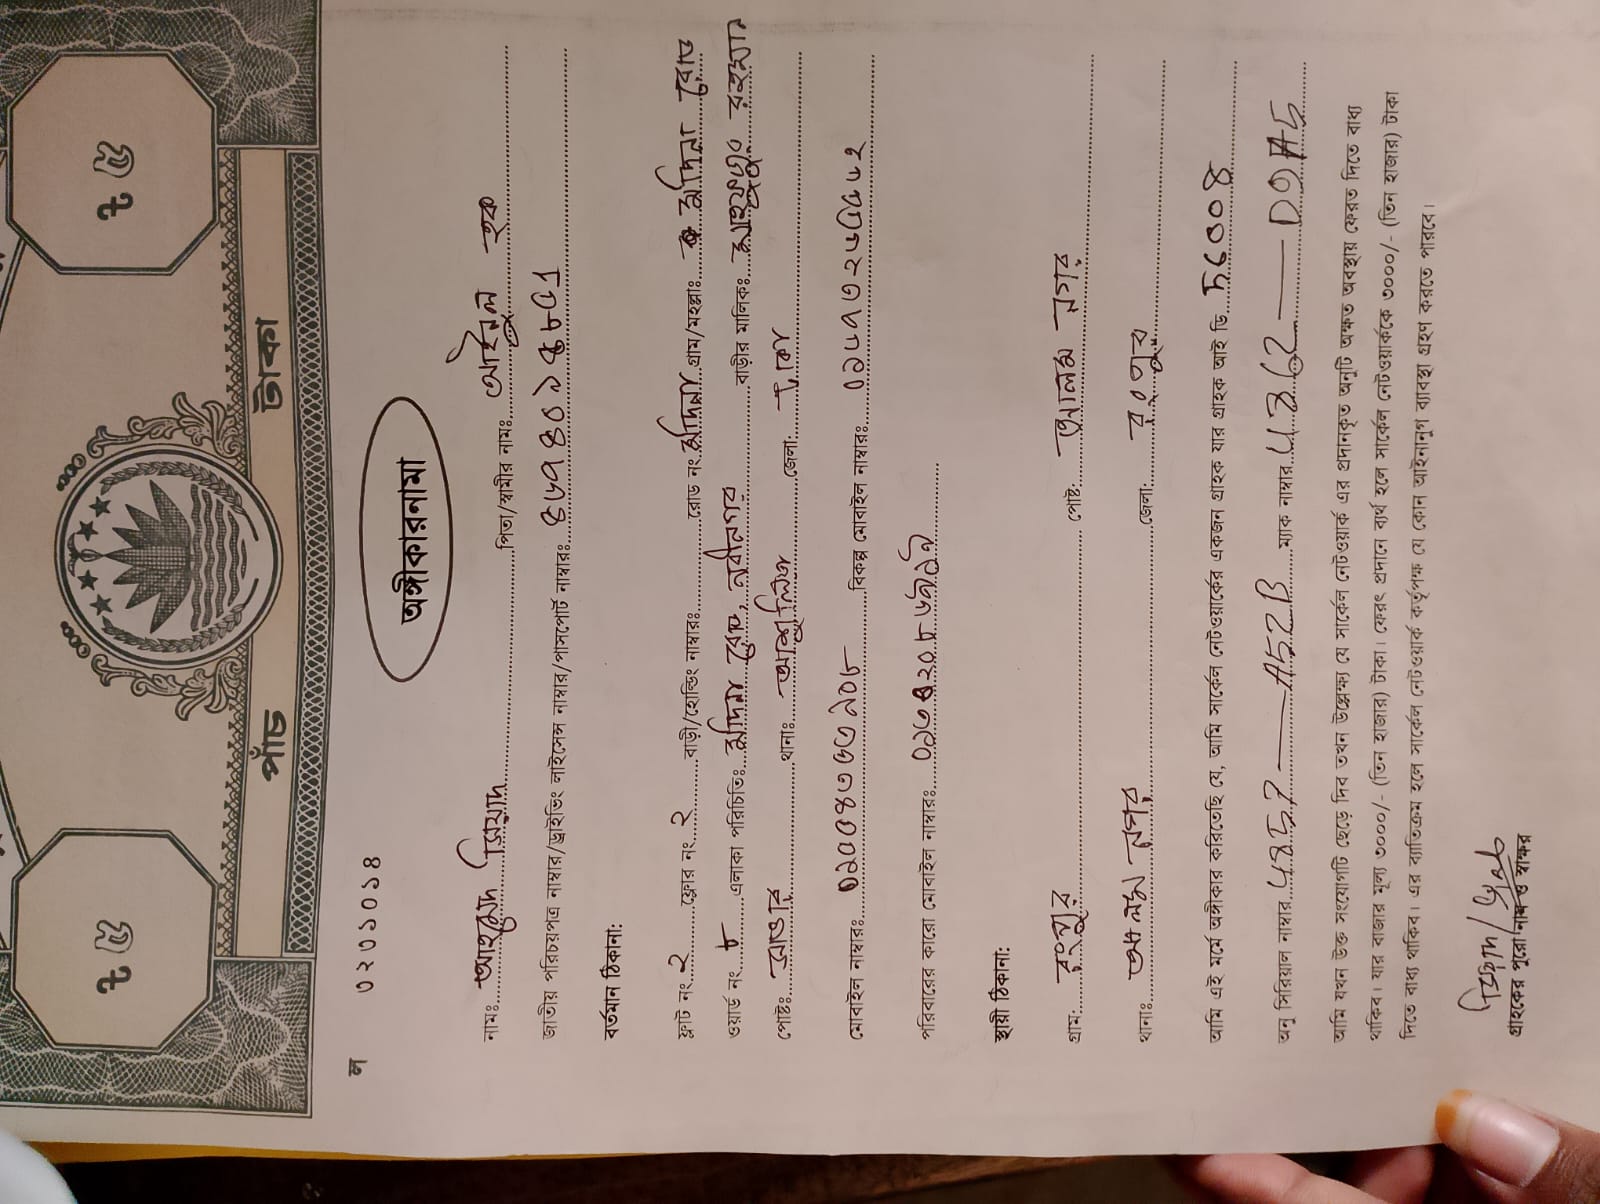 ৳ ৫ ৳ ৫
পাঁচ টাকা
ল ৩২৩১০১৪
অঙ্গীকারনামা
নামঃ আহমেদ রিয়াদ পিতা/স্বামীর নামঃ আইনুল হক
জাতীয় পরিচয়পত্র নাম্বার/ড্রাইভিং লাইসেন্স নাম্বার/পাসপোর্ট নাম্বারঃ
বর্তমান ঠিকানা:
ফ্লাট নং ২ ফ্লোর নং ২ বাড়ী/হোল্ডিং নাম্বারঃ রোড নং মাদিনা গ্রাম/মহল্লাঃ মদিনা রোড
ওয়ার্ড নং ৮ এলাকা পরিচিতিঃ মদিনা রোড, নবীনগর বাড়ীর মালিকঃ মাহফুজুর রহমান
পোষ্টঃ সাভার থানাঃ আশুলিয়া জেলা: ঢাকা
মোবাইল নাম্বারঃ বিকল্প মোবাইল নাম্বারঃ
পরিবারের কারো মোবাইল নাম্বারঃ
স্থায়ী ঠিকানা:
গ্রাম: রংপুর পোষ্ট: আলম নগর
থানাঃ আলম নগর জেলা: রংপুর
আমি এই মর্মে অঙ্গীকার করিতেছি যে, আমি সার্কেল নেটওয়ার্কের একজন গ্রাহক যার গ্রাহক আই ডি
অনু সিরিয়াল নাম্বার A52B ম্যাক নাম্বার
আমি যখন উক্ত সংযোগটি ছেড়ে দিব তখন উল্লেক্ষ্য যে সার্কেল নেটওয়ার্ক এর প্রদানকৃত অনুটি অক্ষত অবস্থায় ফেরত দিতে বাধ্য
থাকিব। যার বাজার মূল্য ৩০০০/- (তিন হাজার) টাকা। ফেরৎ প্রদানে ব্যর্থ হলে সার্কেল নেটওয়ার্ককে ৩০০০/- (তিন হাজার) টাকা
দিতে বাধ্য থাকিব। এর ব্যতিক্রম হলে সার্কেল নেটওয়ার্ক কর্তৃপক্ষ যে কোন আইনানুগ ব্যাবস্থা গ্রহন করতে পারবে।
গ্রাহকের পুরো নাম ও স্বাক্ষর